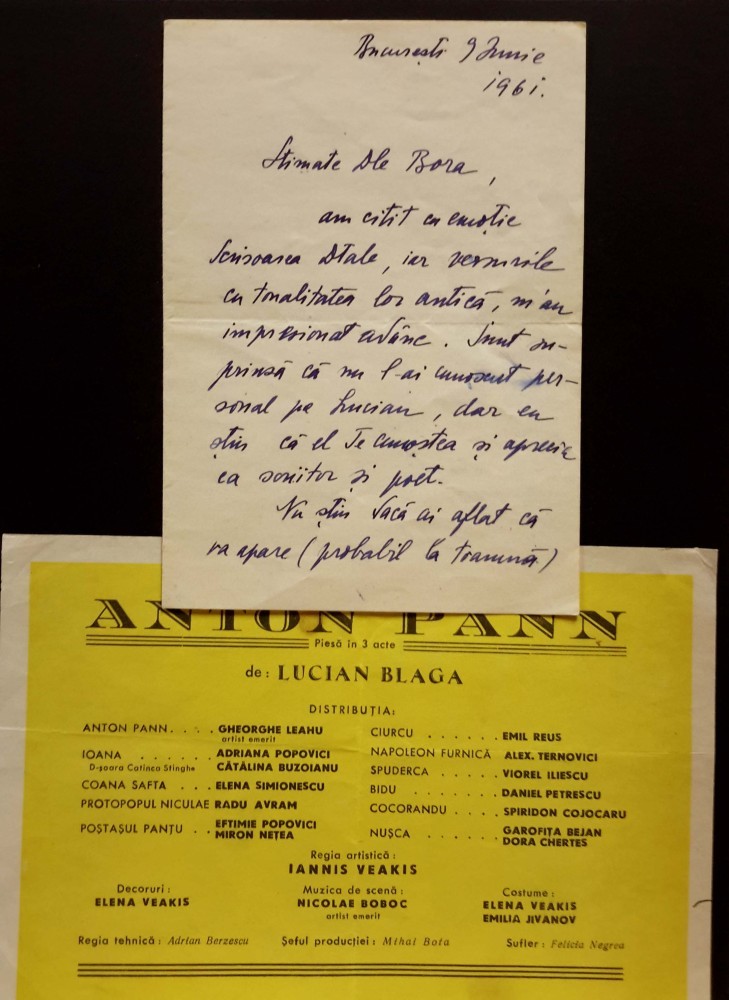 București 9 Iunie
1961.
Stimate Dle Bora,
am citit cu emoție
scrisoarea Dtale, iar versurile
cu tonalitatea lor antică, m'au
impresionat adânc. Sunt sur-
prinsă că nu l-ai cunoscut per-
sonal pe Lucian, dar eu
știu că el Te cunoștea și aprecia
ca scriitor și poet.
Nu știu dacă ai aflat că
va apare (probabil la toamnă)
ANTON PANN
Piesă în 3 acte
de: LUCIAN BLAGA
DISTRIBUȚIA:
ANTON PANN. . . . GHEORGHE LEAHU
artist emerit
IOANA . . . . . . ADRIANA POPOVICI
D-șoara Catinca Stinghe CĂTĂLINA BUZOIANU
COANA SAFTA . . . ELENA SIMIONESCU
PROTOPOPUL NICULAE RADU AVRAM
POȘTAȘUL PANȚU . . EFTIMIE POPOVICI
MIRON NEȚEA
CIURCU . . . . . . EMIL REUS
NAPOLEON FURNICĂ ALEX. TERNOVICI
SPUDERCA . . . . . VIOREL ILIESCU
BIDU . . . . . . . DANIEL PETRESCU
COCORANDU . . . . SPIRIDON COJOCARU
NUȘCA . . . . . . GAROFIȚA BEJAN
DORA CHERTES
Regia artistică:
IANNIS VEAKIS
Decoruri:
ELENA VEAKIS
Muzica de scenă:
NICOLAE BOBOC
artist emerit
Costume:
ELENA VEAKIS
EMILIA JIVANOV
Regia tehnică: Adrian Berzescu Șeful producției: Mihai Bota Sufler: Felicia Negrea